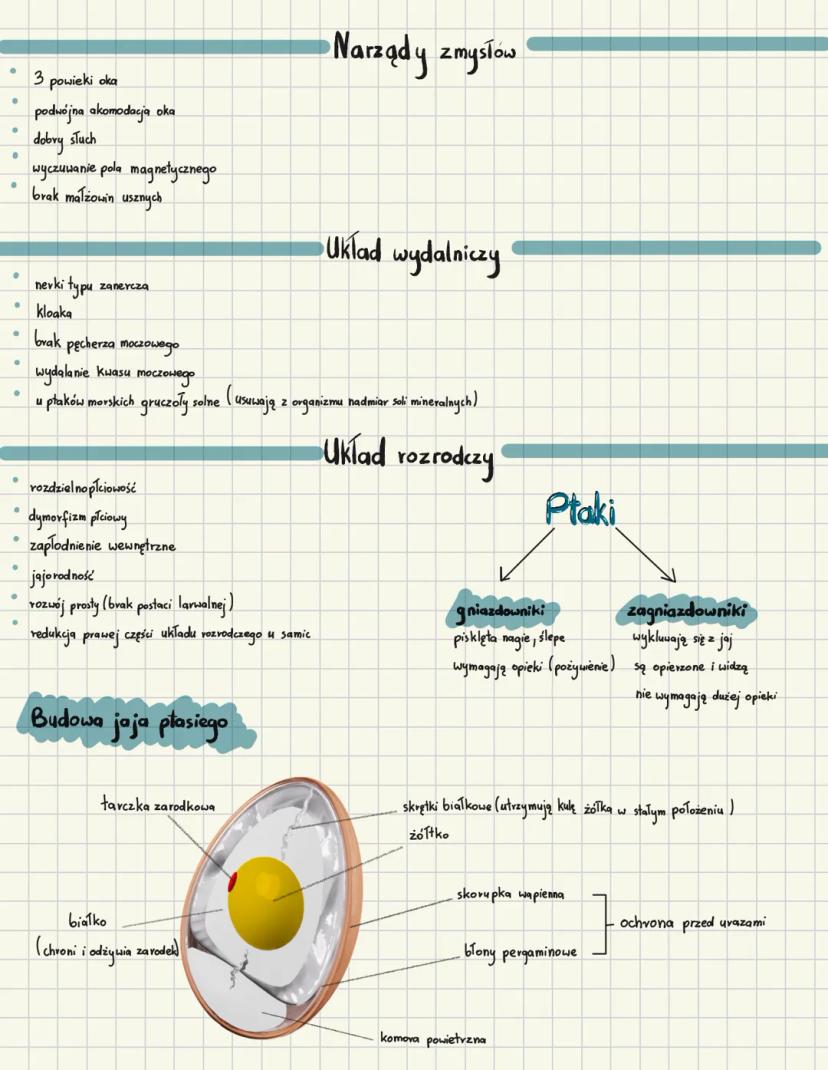 Narządy zmysłów
3 powieki oka
podwójna akomodacja oka
dobry słuch
wyczuwanie pola magnetycznego
brak małżowin usznych
Układ wydalniczy
nerki typu zanercza
kloaka
brak pęcherza moczowego
wydalanie kwasu moczowego
u ptaków morskich gruczoły solne (usuwają z organizmu nadmiar soli mineralnych)
Układ rozrodczy
rozdzielnopłciowość
dymorfizm płciowy
zapłodnienie wewnętrzne
jajorodność
rozwój prosty (brak postaci larwalnej)
redukcja prawej części układu rozrodczego u samic
Ptaki
gniazdowniki
pisklęta nagie, ślepe
wymagają opieki (pożywienie)
zagniazdowniki
wykluwają się z jaj
są opierzone i widzą
nie wymagają dużej opieki
Budowa jaja ptasiego
tarczka zarodkowa
skrętki białkowe (utrzymują kulę żółtka w stałym położeniu)
żółtko
skorupka wapienna
ochrona przed urazami
białko
(chroni i odżywia zarodek)
błony pergaminowe
komora powietrzna